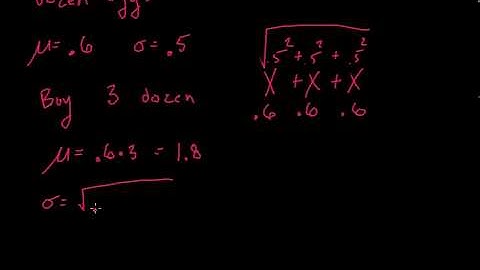 dozen eggs
μ= .6 σ= .5
Buy 3 dozen
μ= .6·3 = 1.8
σ= √
√.5² + .5² + .5²
X + X + X
.6 .6 .6